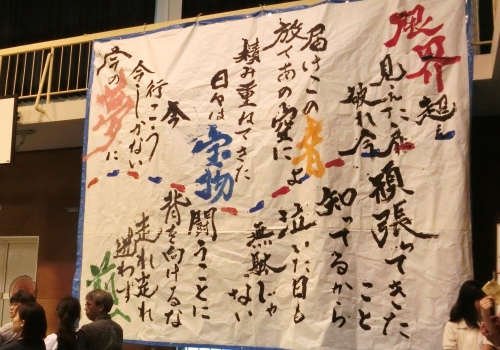 限界超え
見えた
破れ今
頑張ってきた
こと
知ってるから
届けこの音よ
放てあの空に
泣いた日も
無駄じゃ
ない
積み重ねてきた
日々は宝物
闘うことに
背を向けるな
今
行こう
今しかない
夢に
走れ走れ
迷わず
前へ